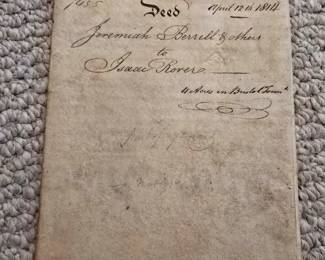 Deed April 12th 1814
Jeremiah Berrell & others
to
Isaac Rover
4 Acres in Bristol Town